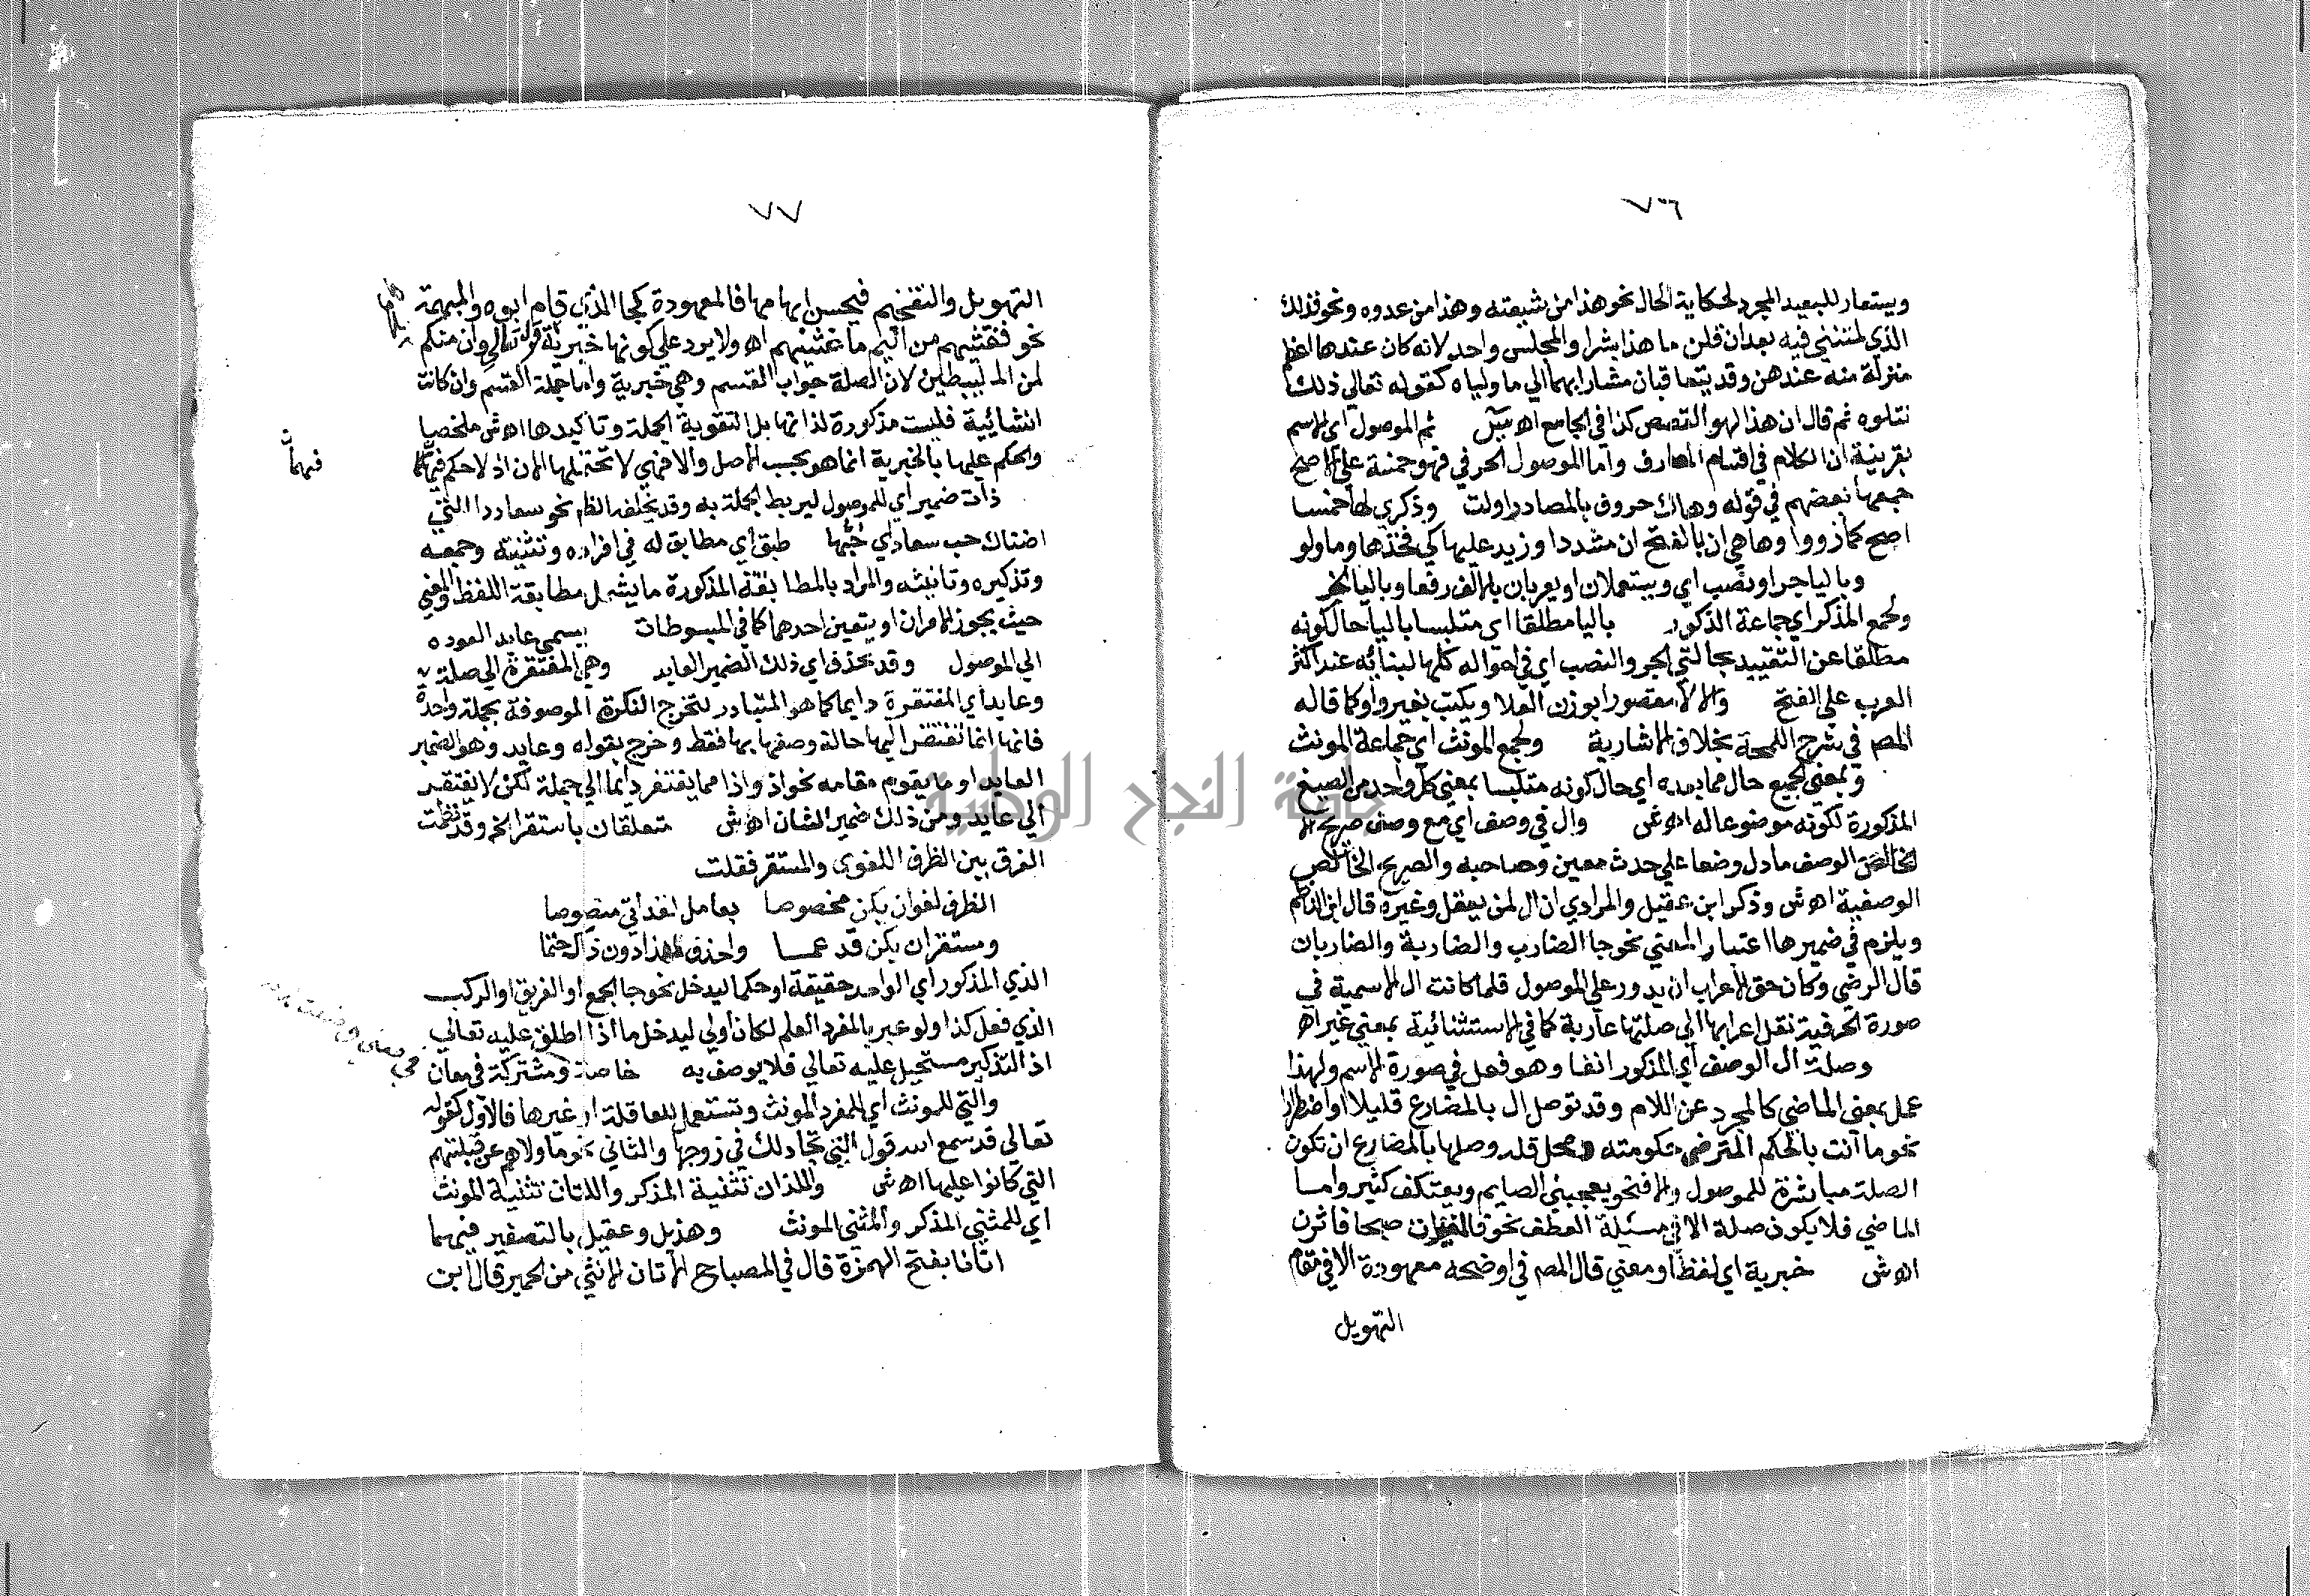 ٧٦
ويستعار للبعيد المجرد لحكاية الحال نحو هذا من شيعته وهذا من عدوه ونحو فذلك
الذي لمتنني فيه بعد ان قلن ما هذا بشرا والمجلس واحد لانه كان عندها اعظم
منزلة منه عندهن وقد يتعاقبان مشارا بهما الي ما ولياه كقوله تعالي ذلك
نتلوه ثم قال ان هذا لهو القصص كذا في الجامع اه ثم الموصول اي الاسم
بقرينة ان الكلام في اقسام المعارف واما الموصول الحرفي فهو خمسة علي الاصح
جمعها بعضهم في قوله وهاك حروف بالمصادر اولت وذكري لها خمسا
اصح كما رووا وها هي ان بالفتح ان مشددا وزيد عليها كي فخذها وما ولو
وبالياجرا ونصب اي ويستعملان او يعربان بالالف رفعا وباليا الخ
ولجمع المذكر اي جماعة الذكور باليا مطلقا اي متلبسا باليا حال كونه
مطلقا عن التقييد بحالتي الجر والنصب اي في احواله كلها لبنائه عند اكثر
العرب علي الفتح والالا مقصورا بوزن العلا ويكتب بغير واو كما قاله
المص في شرح اللمحة بخلاف الاشارية ولجمع المونث اي جماعة المونث
وبمعني الجميع حال مما بعده اي حال كونه متلبسا بمعني كل واحد من الصيغ
المذكورة لكونه موضوعا له اه ش وال في وصف اي مع وصف صريح الا
لخالص الوصف ما دل وضعا علي حدث معين وصاحبه والصريح الخالص
الوصفية اه ش وذكر ابن عقيل والمرادي ان ال لمن يعقل وغيره قال ابن الناظم
ويلزم في ضميرها اعتبار المعني نحو جا الضارب والضاربة والضاربات
قال الرضي وكان حق الاعراب ان يدور علي الموصول فلما كانت ال الاسمية في
صورة الحرفية نقل اعرابها الي صلتها عارية كما في الاستثنائية بمعني غير اه
وصلة ال الوصف اي المذكور انفا وهو فعل في صورة الاسم ولهذا
عمل بمعني الماضي كالمجرد عن اللام وقد توصل ال بالمضارع قليلا او اضطرارا
نحو ما انت بالحكم الترضي حكومته ومحل قلة وصلها بالمضارع ان تكون
الصلة مباشرة للموصول والا فنحو يعجبني الصايم ويعتكف كثير واما
الماضي فلا يكون صلة الا في مسئلة العطف نحو فالمغيرات صبحا فاثرن
اه ش خبرية اي لفظا ومعني قال المص في اوضحه معهودة الا في مقام
التهويل
٧٧
التهويل والتفخيم فيحسن ابهامها فالمعهودة كجا الذي قام ابوه والمبهمة
نحو فغشيهم من اليم ما غشيهم اه ولا يرد علي كونها خبرية قوله تعالي وان منكم
لمن ليبطين لان الصلة جواب القسم وهي خبرية واما جملة القسم وان كانت
انشائية فليست مذكورة لذاتها بل لتقوية الجملة وتاكيدها اه ش ملخصا
والحكم عليها بالخبرية انما هو بحسب الاصل والا فهي لا تحتملها الان اذ لا حكم فيها
فيها
ذات ضمير اي للموصول ليربط الجملة به وقد يخلفه الظاهر نحو سعاد التي
اضناك حب سعاد اي حبها طبق اي مطابق له في افراده وتثنية وجمعه
وتذكيره وتانيثه والمراد بالمطابقة المذكورة ما يشمل مطابقة اللفظ والمعني
حيث يجوز الامران او يتعين احدهما كما في المبسوطات يسمي عايد العوده
الي الموصول وقد يحذف اي ذلك الضمير العايد وهي المفتقرة الي صلة
وعايد اي المفتقرة دايما كما هو المتبادر لتخرج النكرة الموصوفة بجملة واحدة
فانها انما تفتقر اليها حالة وصفها بها فقط وخرج بقوله وعايد وهو الضمير
العايد او ما يقوم مقامه نحو اذ واذا مما يفتقر دايما الي جملة لكن لا يفتقد
الي عايد ومن ذلك ضمير الشان اه ش متعلقان باستقر الخ وقد نظمت
الفرق بين الظرف اللغوي والمستقر فقلت
الظرف لغوان يكن مخصوصا بعامل لغد اتي منصوصا
ومستقران يكن قد عما واحذف لهذا دون ذاك حتما
الذي المذكور اي الواحد حقيقة او حكما ليدخل نحو جا الجمع او الفريق او الركب
الذي فعل كذا ولو عبر بالمفرد العلم لكان اولي ليدخل ما اذا اطلق عليه تعالي
اذ التذكير مستحيل عليه تعالي فلا يوصف به خاصة ومشتركة في معان
والتي للمونث اي للمفرد المونث وتستعمل للعاقلة او غيرها فالاول كقوله
تعالي قد سمع الله قول التي تجادلك في زوجها والثاني نحو ما ولاهم عن قبلتهم
التي كانوا عليها اه ش واللذان تثنية المذكر واللتان تثنية المونث
اي للمثني المذكر والمثني المونث وهذيل وعقيل بالتصغير فيهما
اتانا بفتح الهمزة قال في المصباح الاتان الانثي من الحمير قال ابن
جامعة النجاح الوطنية